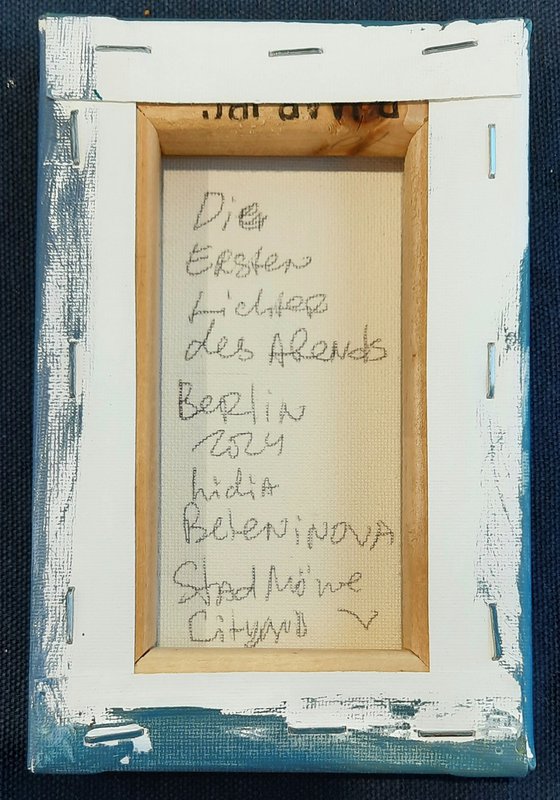 Die
Ersten
Lichter
des Abends
Berlin
2024
Lidia
Beleninova
Stadmöwe